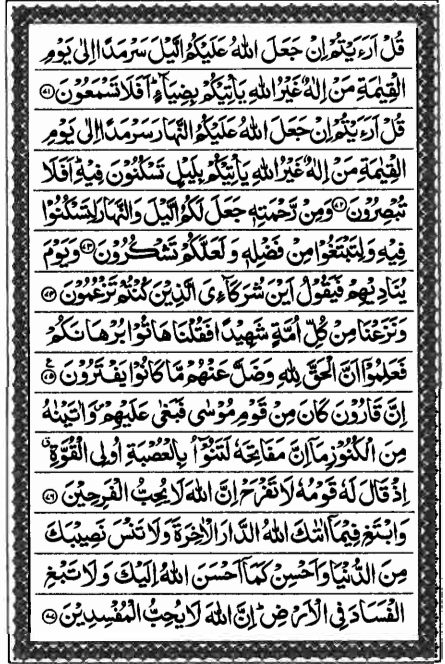 قُلْ اَرَءَيْتُمْ اِنْ جَعَلَ اللّٰهُ عَلَيْكُمُ الَّيْلَ سَرْمَدًا اِلٰى يَوْمِ
الْقِيٰمَةِ مَنْ اِلٰهٌ غَيْرُ اللّٰهِ يَاْتِيْكُمْ بِضِيَآءٍ ؕ اَفَلَا تَسْمَعُوْنَ ﴿۷۱﴾
قُلْ اَرَءَيْتُمْ اِنْ جَعَلَ اللّٰهُ عَلَيْكُمُ النَّهَارَ سَرْمَدًا اِلٰى يَوْمِ
الْقِيٰمَةِ مَنْ اِلٰهٌ غَيْرُ اللّٰهِ يَاْتِيْكُمْ بِلَيْلٍ تَسْكُنُوْنَ فِيْهِ ؕ اَفَلَا
تُبْصِرُوْنَ ﴿۷۲﴾ وَمِنْ رَّحْمَتِهٖ جَعَلَ لَكُمُ الَّيْلَ وَالنَّهَارَ لِتَسْكُنُوْا
فِيْهِ وَلِتَبْتَغُوْا مِنْ فَضْلِهٖ وَلَعَلَّكُمْ تَشْكُرُوْنَ ﴿۷۳﴾ وَيَوْمَ
يُنَادِيْهِمْ فَيَقُوْلُ اَيْنَ شُرَكَآءِىَ الَّذِيْنَ كُنْتُمْ تَزْعُمُوْنَ ﴿۷۴﴾
وَنَزَعْنَا مِنْ كُلِّ اُمَّةٍ شَهِيْدًا فَقُلْنَا هَاتُوْا بُرْهَانَكُمْ
فَعَلِمُوْٓا اَنَّ الْحَقَّ لِلّٰهِ وَضَلَّ عَنْهُمْ مَّا كَانُوْا يَفْتَرُوْنَ ﴿۷۵﴾
اِنَّ قَارُوْنَ كَانَ مِنْ قَوْمِ مُوْسٰى فَبَغٰى عَلَيْهِمْ وَاٰتَيْنٰهُ
مِنَ الْكُنُوْزِ مَاۤ اِنَّ مَفَاتِحَهٗ لَتَنُوْٓاُ بِالْعُصْبَةِ اُولِى الْقُوَّةِ ۗ
اِذْ قَالَ لَهٗ قَوْمُهٗ لَا تَفْرَحْ اِنَّ اللّٰهَ لَا يُحِبُّ الْفَرِحِيْنَ ﴿۷۶﴾
وَابْتَغِ فِيْمَاۤ اٰتٰىكَ اللّٰهُ الدَّارَ الْاٰخِرَةَ وَلَا تَنْسَ نَصِيْبَكَ
مِنَ الدُّنْيَا وَاَحْسِنْ كَمَاۤ اَحْسَنَ اللّٰهُ اِلَيْكَ وَلَا تَبْغِ
الْفَسَادَ فِى الْاَرْضِ ؕ اِنَّ اللّٰهَ لَا يُحِبُّ الْمُفْسِدِيْنَ ﴿۷۷﴾